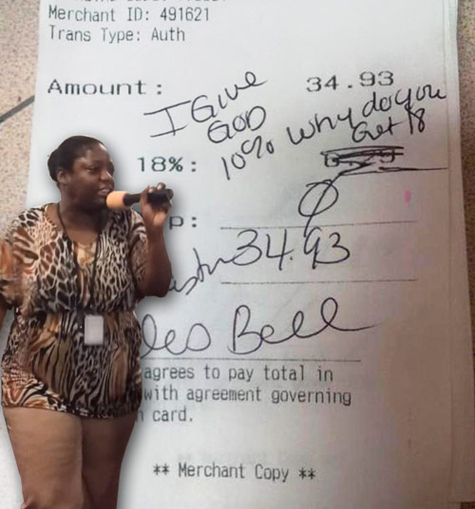 Merchant ID: 491621
Trans Type: Auth
Amount: 34.93
I Give
God
10% why do you
Get 18
18%:
p:
0
34.93
Bell
agrees to pay total in
with agreement governing
card.
** Merchant Copy **